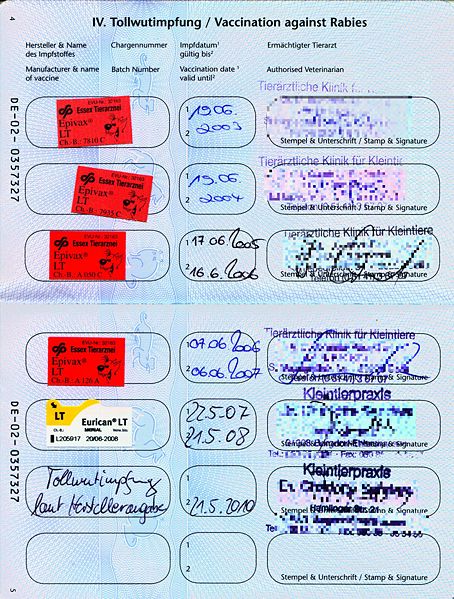 4
IV. Tollwutimpfung / Vaccination against Rabies
Hersteller & Name des Impfstoffes
Chargennummer
Impfdatum¹ gültig bis²
Ermächtigter Tierarzt
Manufacturer & name of vaccine
Batch Number
Vaccination date¹ valid until²
Authorised Veterinarian
DE-02- 0357327
Essex Tierarznei
Epivax®
LT
Ch.-B.: 7810 C
1 19.06.
2 2003
Tierärztliche Klinik
Stempel & Unterschrift / Stamp & Signature
Essex Tierarznei
Epivax®
LT
1 19.06.
2 2004
Tierärztliche Klinik für Kleintier
Stempel & Unterschrift / Stamp & Signature
Essex Tierarznei
Epivax®
LT
Ch.-B.: A 050 C
1 17.06.2005
2 16.6.2006
Tierärztliche Klinik für Kleintiere
Stempel & Unterschrift / Stamp & Signature
DE-02- 0357327
Essex Tierarznei
Epivax®
LT
Ch.-B.: A 126 A
1 07.06.2006
2 06.06.2007
Tierärztliche Klinik für Kleintiere
Stempel & Unterschrift / Stamp & Signature
LT
Eurican® LT
MERIAL
L205917 20/08-2008
22.5.07
21.5.08
Kleintierpraxis
Tollwutimpfung
laut Herstellerangabe
2 21.5.2010
Kleintierpraxis
Hemlinger Str. 21
Tel.
1
2
Stempel & Unterschrift / Stamp & Signature
5